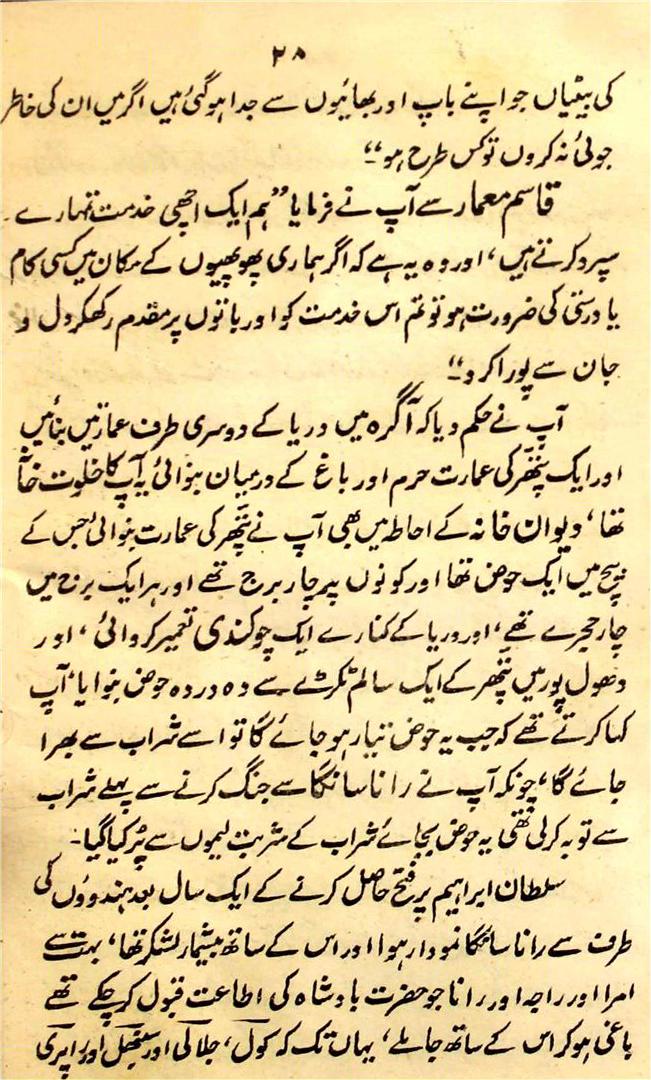 ۲۸
کی بیٹیاں جو اپنے باپ اور بھائیوں سے جدا ہو گئی ہیں اگر میں ان کی خاطر
جوئی نہ کروں تو کس طرح ہو“۔
قاسم معمار سے آپ نے فرمایا ”ہم ایک اچھی خدمت تمہارے
سپرد کرتے ہیں، اور وہ یہ ہے کہ اگر ہماری پھوپھیوں کے مکان میں کسی کام
یا درستی کی ضرورت ہو تو تم اس خدمت کو اور باتوں پر مقدم رکھکر دل و
جان سے پورا کرو“۔
آپ نے حکم دیا کہ آگرہ میں دریا کے دوسری طرف عمارتیں بنائیں
اور ایک پتھر کی عمارت حرم اور باغ کے درمیان بنوائی یہ آپ کا خلوت خانہ
تھا، دیوان خانہ کے احاطہ میں بھی آپ نے پتھر کی عمارت بنوائی جس کے
بیچ میں ایک حوض تھا اور کونوں پر چار برج تھے اور ہر ایک برج میں
چار حجرے تھے، اور دریا کے کنارے ایک چوکندی تعمیر کروائی، اور
دھول پور میں پتھر کے ایک سالم ٹکڑے سے دہ در دہ حوض بنوایا، آپ
کہا کرتے تھے کہ جب یہ حوض تیار ہو جائے گا تو اسے شراب سے بھرا
جائے گا، چونکہ آپ نے رانا سانگا سے جنگ کرنے سے پہلے شراب
سے توبہ کر لی تھی یہ حوض بجائے شراب کے شربت لیموں سے پُر کیا گیا۔
سلطان ابراہیم پر فتح حاصل کرنے کے ایک سال بعد ہندووں کی
طرف سے رانا سانگا نمودار ہوا اور اس کے ساتھ بیشمار لشکر تھا، بہت سے
امرا اور راجہ اور رانا جو حضرت بادشاہ کی اطاعت قبول کر چکے تھے
باغی ہو کر اس کے ساتھ جا ملے، یہاں تک کہ کول، جلالی اور سنبھل اور راپری